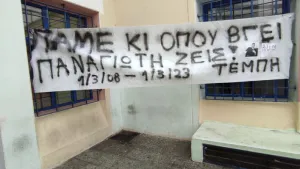 ΠΑΜΕ ΚΙ ΟΠΟΥ ΒΓΕΙ
ΠΑΝΑΓΙΩΤΗ ΖΕΙΣ!
1/3/08 – 1/3/23 ΤΕΜΠΗ